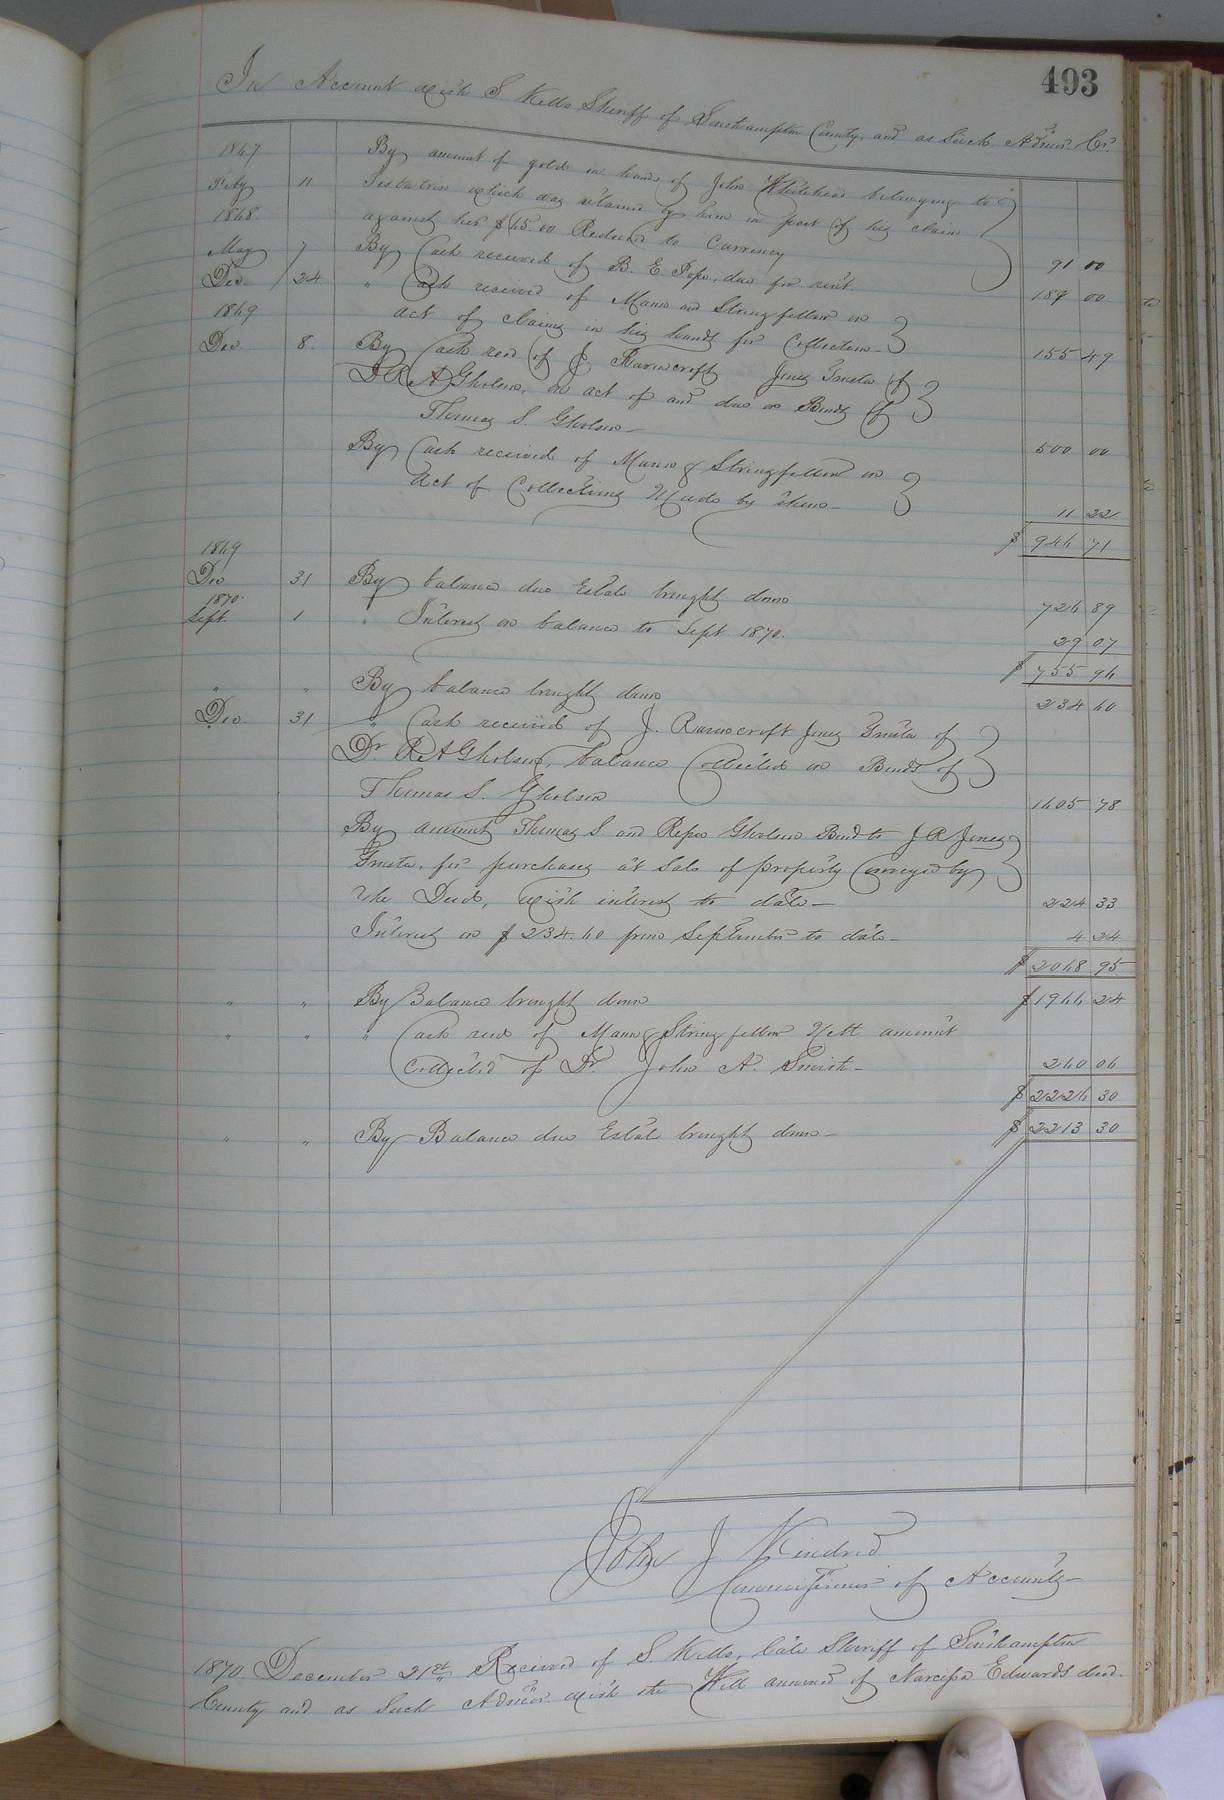 493
In Account with S. Kello Sheriff of Southampton County, and as Such Admor. Cr.
1867 By amount of gold in hands of John Whitehead belonging to
Feby 11 Testatrix which was retained by him in part of his claim
1868 against her $65.00 Reduced to Currency 91 00
May 7 By Cash received of B. E. Pope, due for rent 189 00
Dec 24 " Cash received of Mann and Stringfellow on
1869 act of claims in his hands for Collection 155 49
Dec 8. By Cash recd of J. Ravenscroft Jones Trustee of
Dr R A Gholson, on act of and due on Bonds of
Thomas S. Gholson 500 00
By Cash received of Mann & Stringfellow on
Act of Collections Made by them 11 22
$ 946 71
1869
Dec 31 By balance due Estate brought down 726 89
1870
Sept. 1 " Interest on balance to Sept 1870. 29 07
$ 755 96
" " By balance brought down 234 60
Dec 31 " Cash received of J. Ravenscroft Jones Trustee of
Dr. R A Gholson, balance Collected on Bonds of
Thomas S. Gholson 1605 78
By amount Thomas S. and Gholson Bond to J R Jones
Trustee, for purchases at Sale of property Conveyed by
the Deed, with interest to date 224 33
Interest on $234.60 from September to date 4 24
$ 2068 95
" " By Balance brought down $ 1966 24
" " " Cash recd of Mann & Stringfellow Nett amount
Collected of Dr. John A. Smith 260 06
$ 2226 30
" " By Balance due Estate brought down $ 2213 30
John J Kindred
Commissioner of Accounts
1870 December 21st Received of S. Kello, late Sheriff of Southampton
County and as Such Admor with the Will annexed of Narcissa Edwards decd.